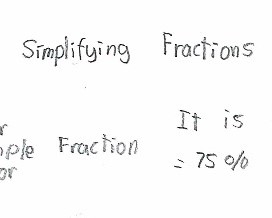 Simplifying Fractions
Fraction It is
= 75 %